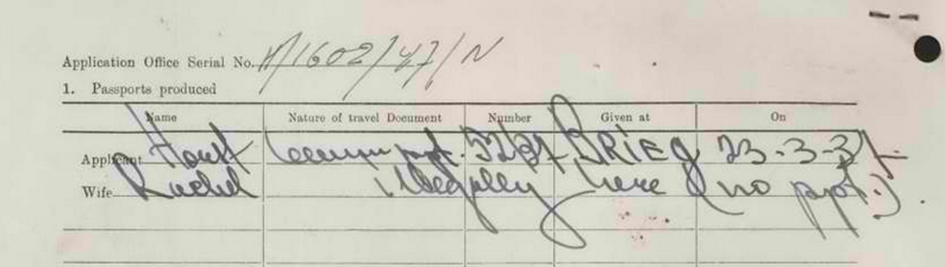 Application Office Serial No. A/1602/47/N
1. Passports produced
Name Nature of travel Document Number Given at On
Applicant Horst German ppt. 52/37 BRIEG 23-3-37
Wife Rachel illegally here (no ppt.)